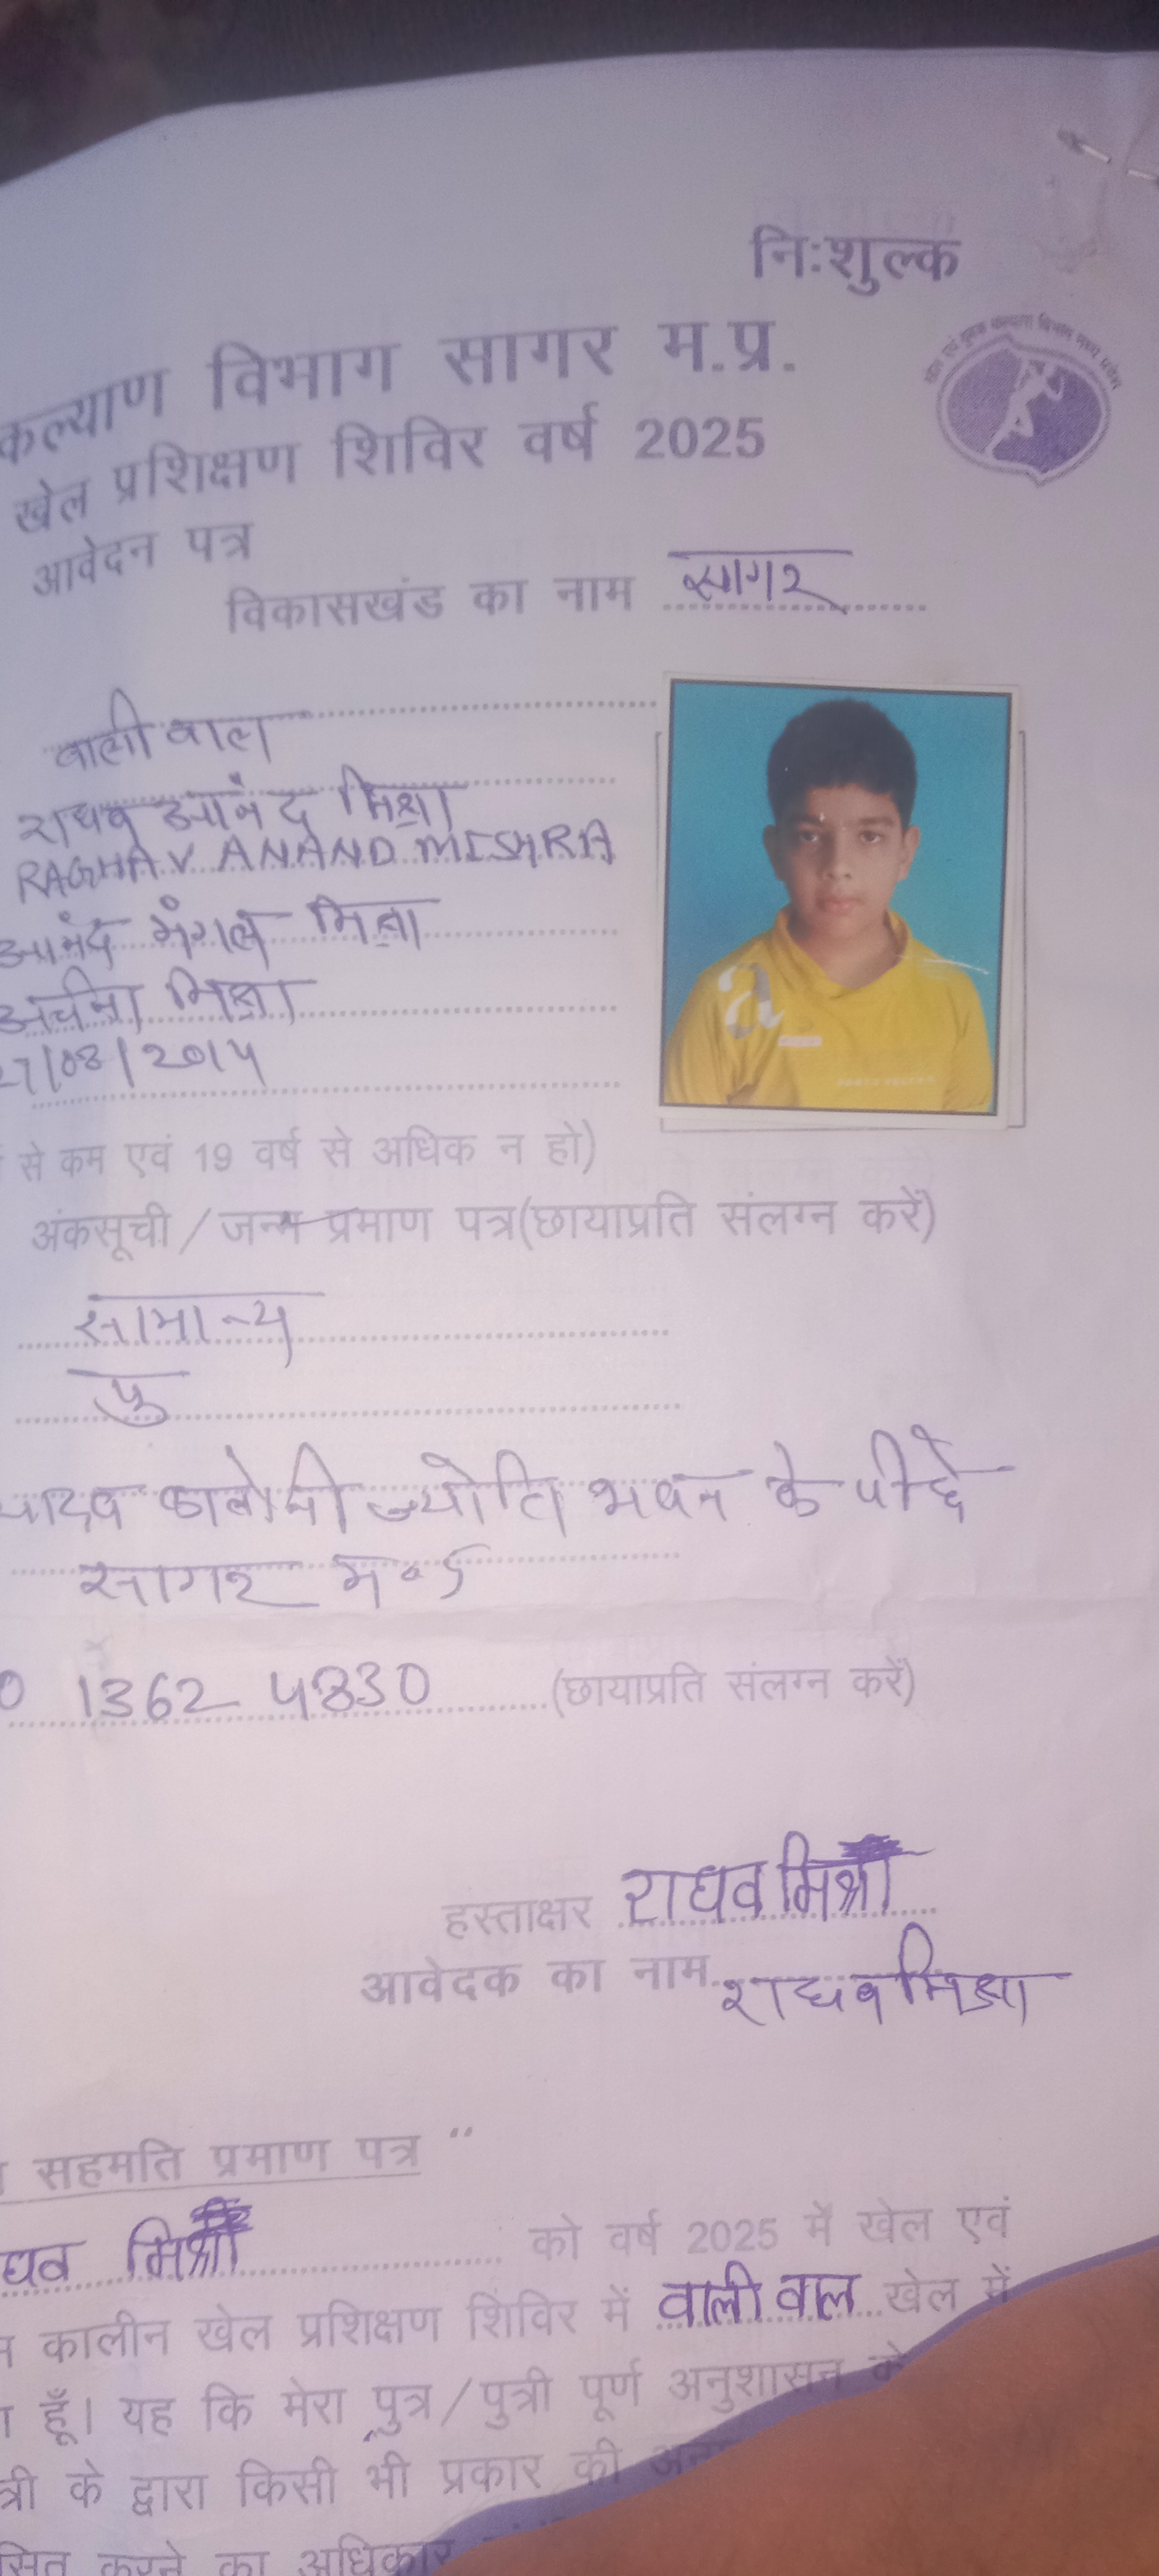 निःशुल्क
कल्याण विभाग सागर म.प्र.
खेल प्रशिक्षण शिविर वर्ष 2025
आवेदन पत्र
विकासखंड का नाम सागर
वालीवाल
राघव आनंद मिश्रा
RAGHAV ANAND MISHRA
आनंद मंगल मिश्रा
अर्चना मिश्रा
27/08/2014
से कम एवं 19 वर्ष से अधिक न हो)
अंकसूची/जन्म प्रमाण पत्र(छायाप्रति संलग्न करें)
सामान्य
पु
यादव कालोनी ज्योति भवन के पीछे
सागर म॰प्र
0 1362 4830 (छायाप्रति संलग्न करें)
हस्ताक्षर राघव मिश्रा
आवेदक का नाम राघव मिश्रा
सहमति प्रमाण पत्र "
घव मिश्रा को वर्ष 2025 में खेल एवं
कालीन खेल प्रशिक्षण शिविर में वालीवाल खेल में
हूँ। यह कि मेरा पुत्र/पुत्री पूर्ण अनुशासन
त्री के द्वारा किसी भी प्रकार की
सित करने का अधिकार